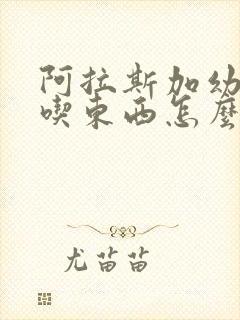 阿拉斯加幼
喫东西怎麼
尤苗苗